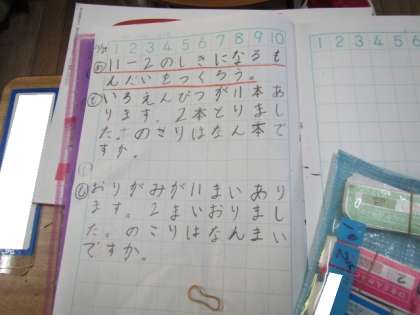 1 2 3 4 5 6 7 8 9 10
め 11-2のしきになるも
んだいをつくろう。
も いろえんぴつが11本あ
ります。2本とりまし
た。のこりはなん本で
すか。
ひ おりがみが11まいあり
ます。2まいおりまし
た。のこりはなんまい
ですか。
1 2 3 4 5 6